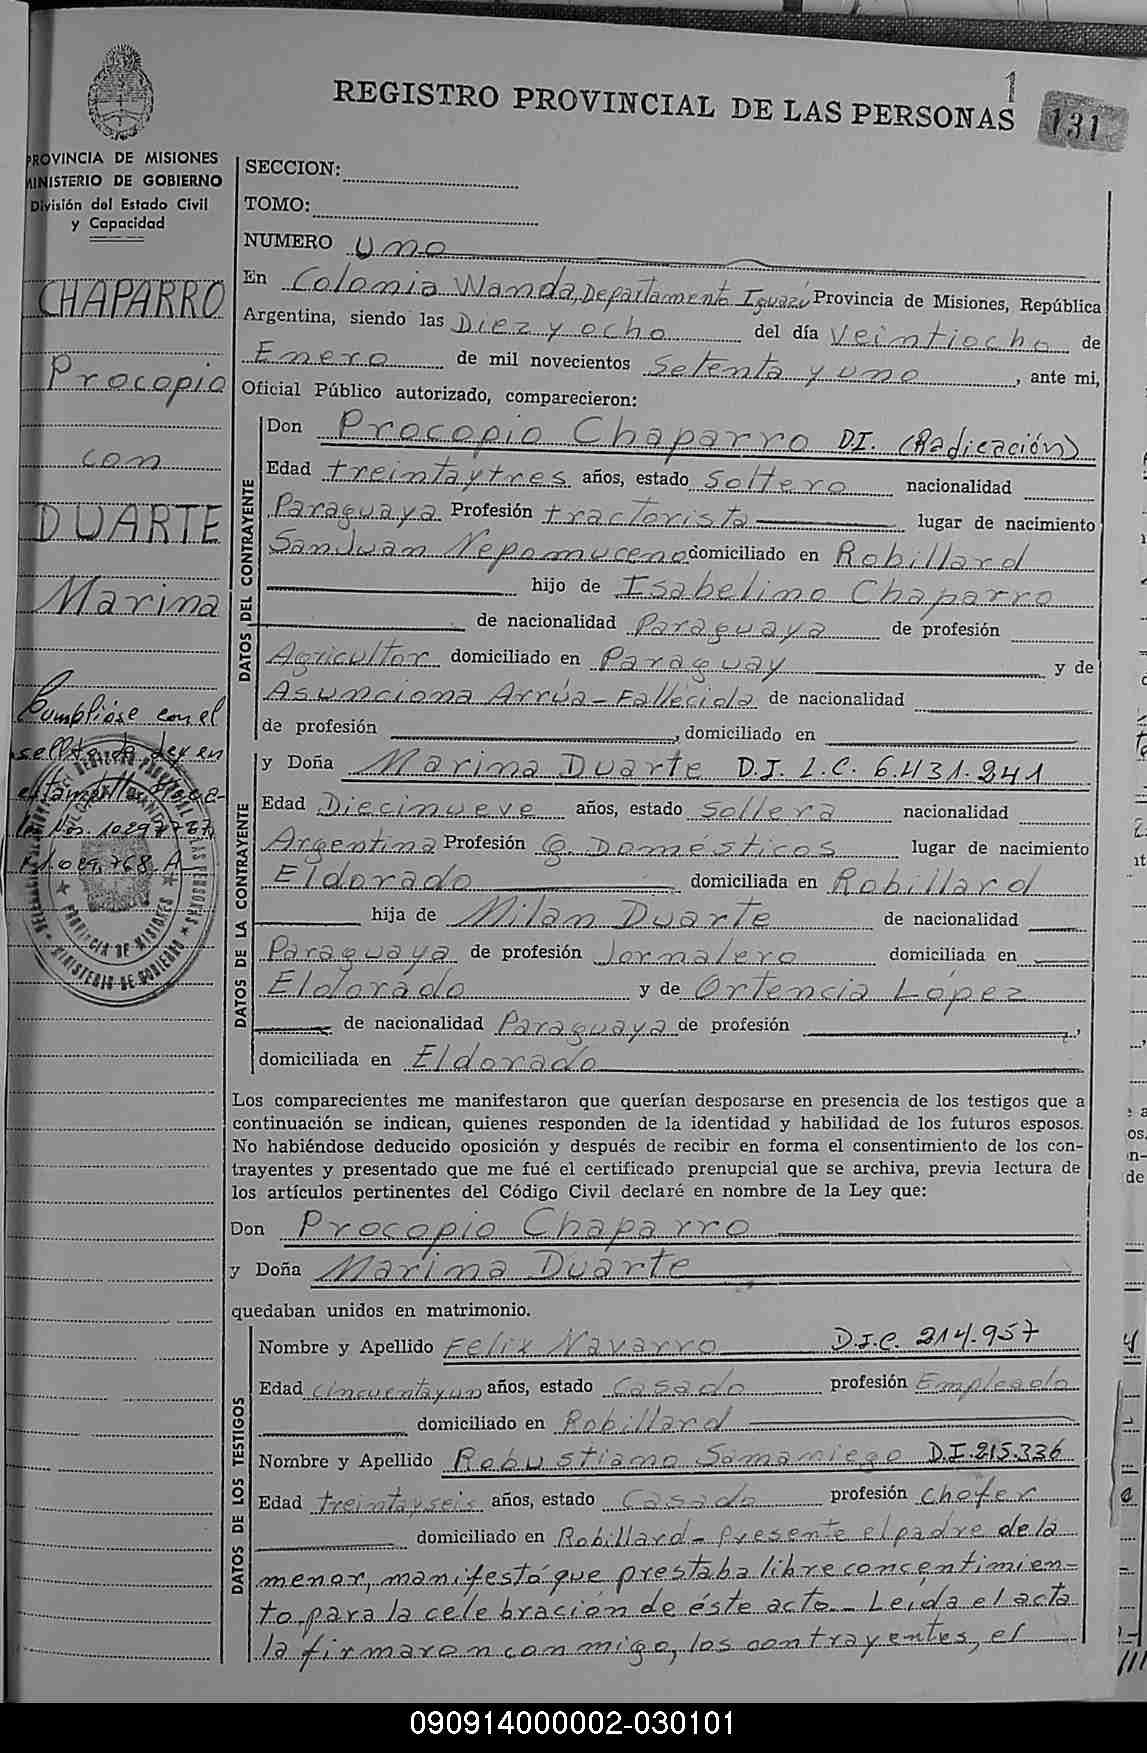 REGISTRO PROVINCIAL DE LAS PERSONAS
1
131
PROVINCIA DE MISIONES
MINISTERIO DE GOBIERNO
División del Estado Civil
y Capacidad
CHAPARRO
Procopio
con
DUARTE
Marina
Cumplióse con el
sellado de Ley en
1.089.768 A
SECCION:
TOMO:
NUMERO Uno
En Colonia Wanda, Departamento Iguazú Provincia de Misiones, República
Argentina, siendo las Diez y ocho del día Veintiocho de
Enero de mil novecientos Setenta y uno, ante mi,
Oficial Público autorizado, comparecieron:
DATOS DEL CONTRAYENTE
Don Procopio Chaparro DI. (Radicación)
Edad treintaytres años, estado Soltero nacionalidad
Paraguaya Profesión tractorista lugar de nacimiento
San Juan Nepomuceno domiciliado en Robillard
hijo de Isabelino Chaparro
de nacionalidad Paraguaya de profesión
Agricultor domiciliado en Paraguay y de
Asunciona Arrúa - Fallecida de nacionalidad
de profesión , domiciliado en
DATOS DE LA CONTRAYENTE
y Doña Marina Duarte D.I. L.C. 6.431.241
Edad Diecinueve años, estado Soltera nacionalidad
Argentina Profesión Q. Domésticos lugar de nacimiento
Eldorado domiciliada en Robillard
hija de Milan Duarte de nacionalidad
Paraguaya de profesión Jornalero domiciliado en
Eldorado y de Ortencia López
de nacionalidad Paraguaya de profesión ,
domiciliada en Eldorado
Los comparecientes me manifestaron que querían desposarse en presencia de los testigos que a
continuación se indican, quienes responden de la identidad y habilidad de los futuros esposos.
No habiéndose deducido oposición y después de recibir en forma el consentimiento de los con-
trayentes y presentado que me fué el certificado prenupcial que se archiva, previa lectura de
los artículos pertinentes del Código Civil declaré en nombre de la Ley que:
Don Procopio Chaparro
y Doña Marina Duarte
quedaban unidos en matrimonio.
DATOS DE LOS TESTIGOS
Nombre y Apellido Felix Navarro D.I.C. 214.957
Edad cincuentayun años, estado Casado profesión Empleado
domiciliado en Robillard
Nombre y Apellido Robustiano Samaniego D.I. 215.336
Edad treintayseis años, estado Casado profesión Chofer
domiciliado en Robillard - Presente el padre de la
menor, manifestó que prestaba libre concentimien-
to para la celebración de éste acto.- Leida el acta
la firmaron conmigo, los contrayentes, el
090914000002-030101